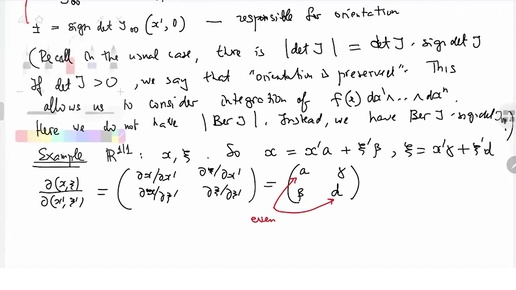 ± = sign det J₀₀ (x', 0) — responsible for orientation
(Recall in the usual case, there is |det J| = det J · sign det J
If det J > 0, we say that "orientation is preserved". This
allows us to consider integration of f(x) dx¹∧...∧dxⁿ.
Here we do not have |Ber J|. Instead, we have Ber J · sign det J₀₀!)
Example ℝ^{1|1} : x, ξ. So x = x'a + ξ'β, ξ = x'γ + ξ'd
∂(x,ξ)/∂(x',ξ') = (∂x/∂x' ∂ξ/∂x' ; ∂x/∂ξ' ∂ξ/∂ξ') = (a γ ; β d)
even